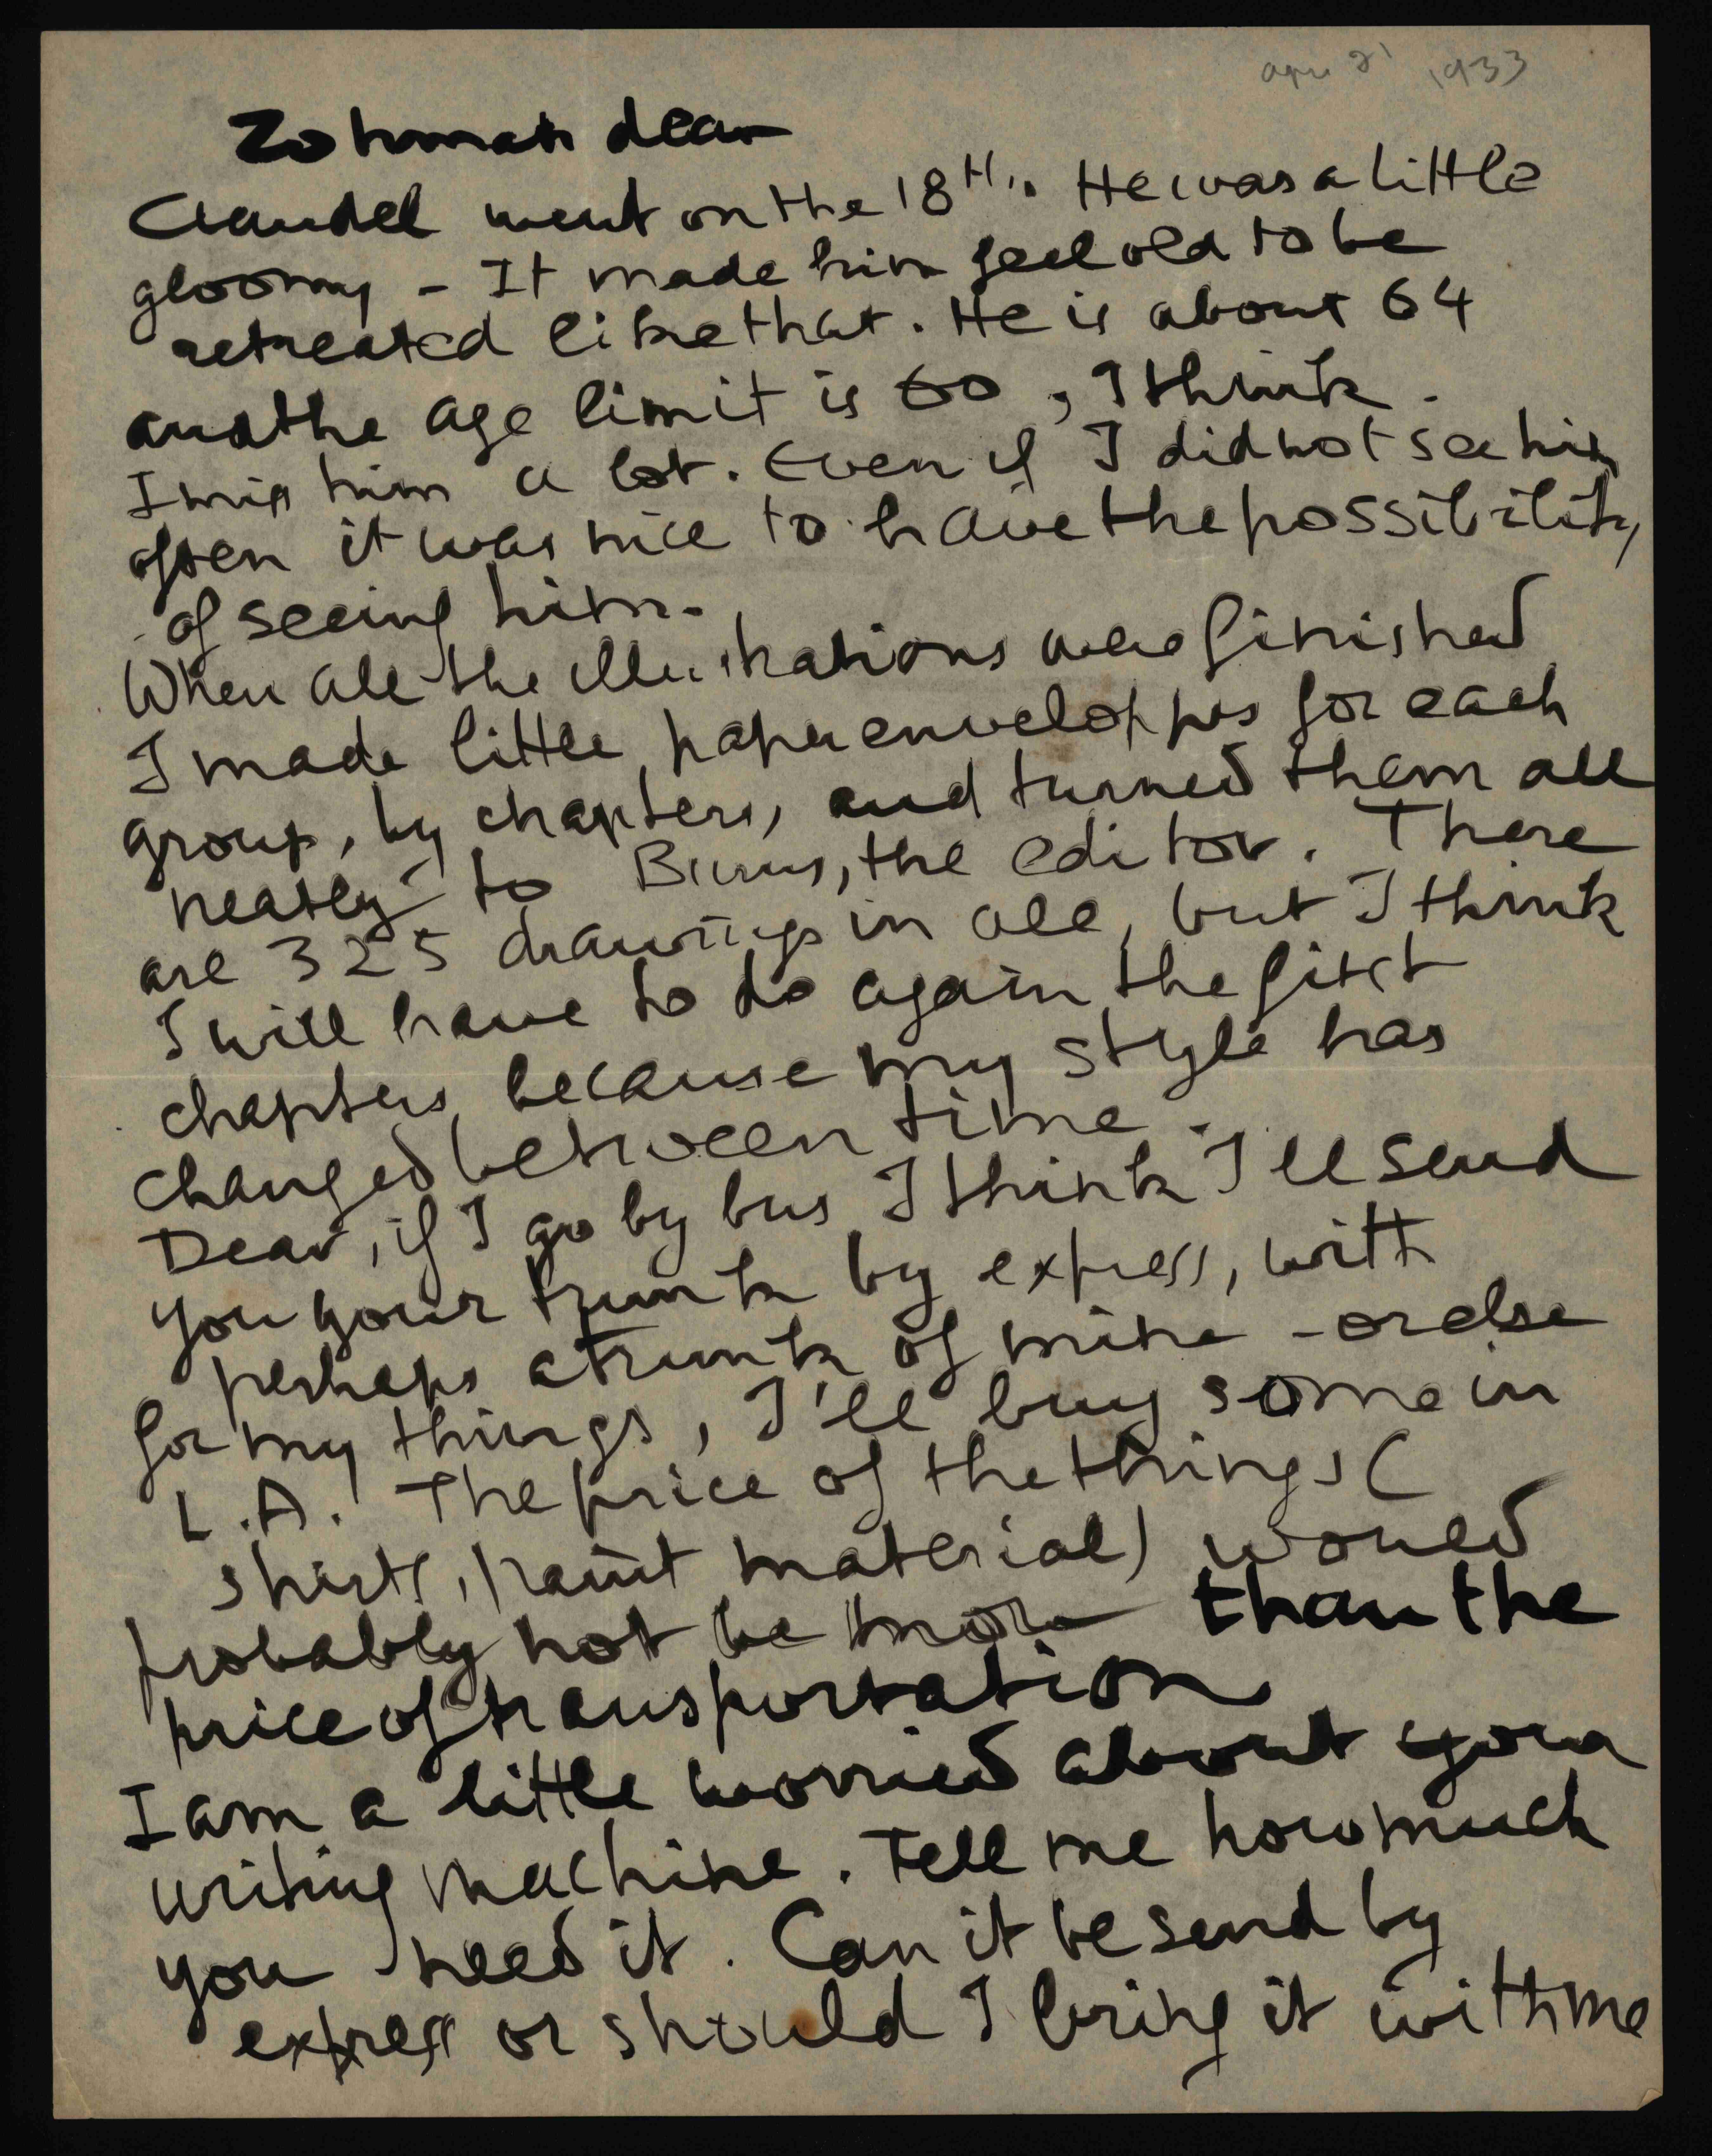 apr 21 1933
Zohmah dear
Claudel went on the 18th. He was a little
gloomy - It made him feel old to be
retreated like that. He is about 64
and the age limit is 60, I think.
I miss him a lot. Even if I did not see him
often it was nice to have the possibility
of seeing him.
When all the illustrations were finished
I made little paper enveloppes for each
group, by chapters, and turned them all
neatly to Burns, the editor. There
are 325 drawings in all, but I think
I will have to do again the first
chapters because my style has
changed between time.
Dear, if I go by bus I think I'll send
you your trunk by express, with
perhaps a trunk of mine - or else
for my things, I'll buy some in
L.A. The price of the things (
shirts, paint material) would
probably not be more than the
price of transportation
I am a little worried about your
writing machine. Tell me how much
you need it. Can it be send by
express or should I bring it with me